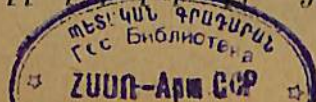 ՊԵՏԱԿԱՆ ԳՐԱԴԱՐԱՆ
Гос Библиотека
ՀՍՍՌ-Арм.ССР